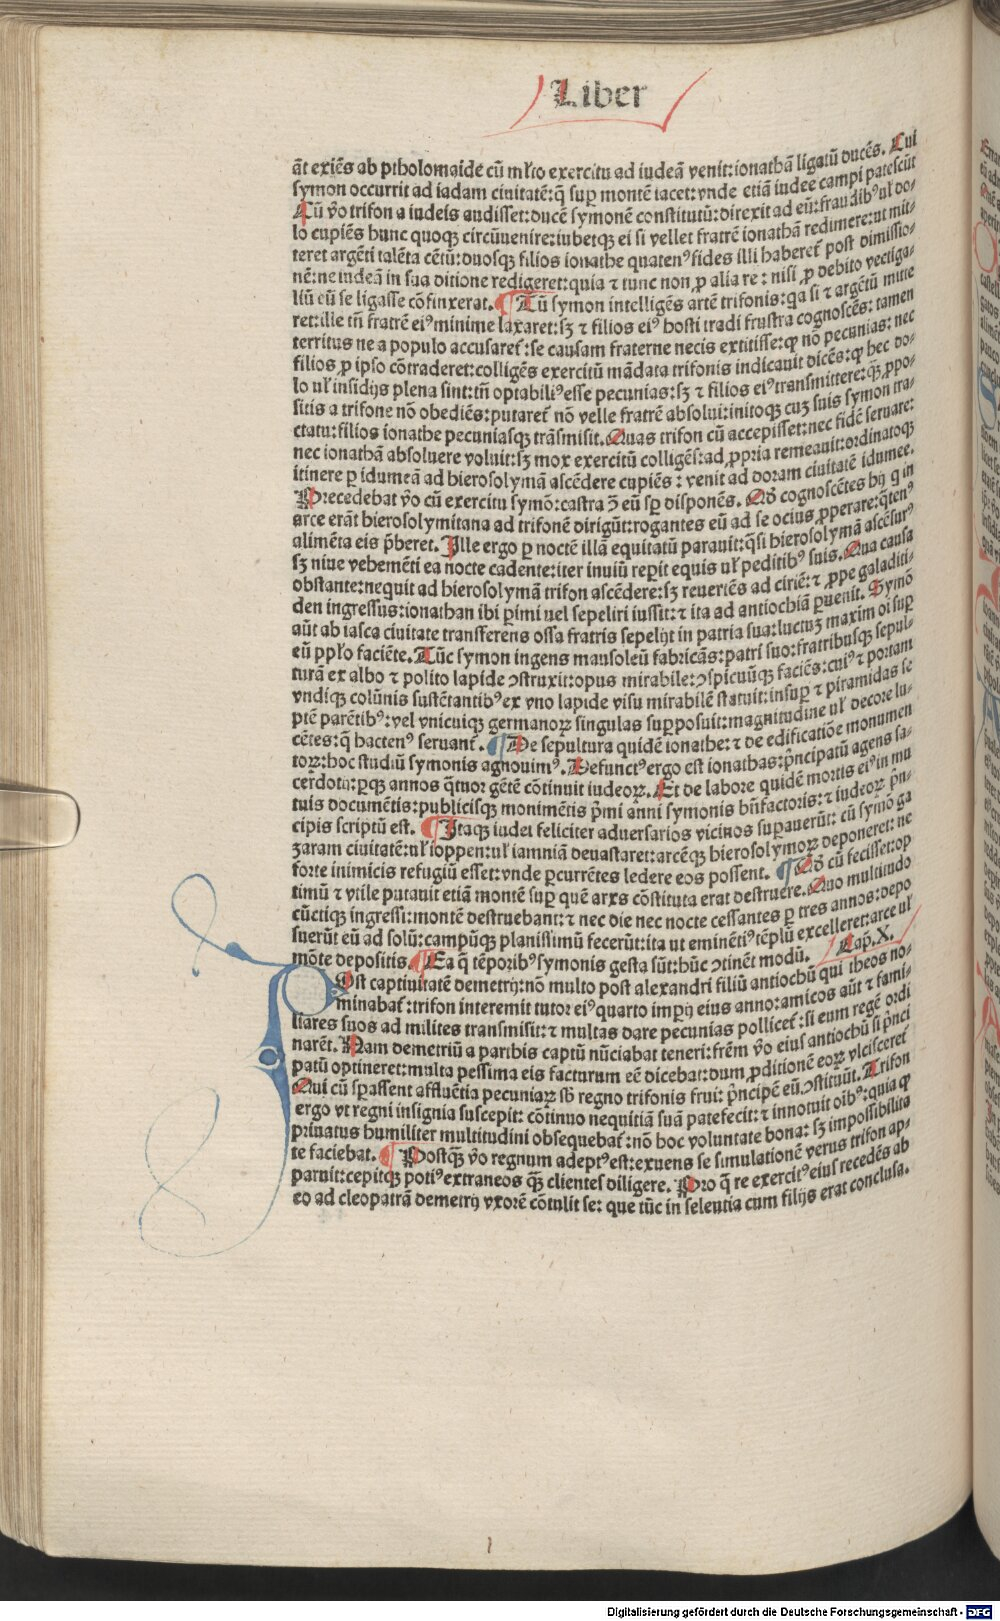 Liber
āt exiēs ab ptholomaide cū mĺto exercitu ad iudeā venit: ionathā ligatū ducēs. Cui
symon occurrit ad iadam ciuitatē: q̄ suꝑ montē iacet: vnde etiā iudee campi patescūt
Cū v̄o trifon a iudeis audisset: ducē symonē constitutū: direxit ad eū: fraudibꝰ uł do-
lo cupiēs hunc quoqꝫ circūuenire: iubetqꝫ ei si vellet fratrē ionathā redimere: ut mit-
teret argēti talēta cētū: duosqꝫ filios ionathe quatenꝰ fides illi haberet̄ post dimissio-
nē: ne iudeā in sua ditione redigeret: quia ⁊ tunc non ꝓ alia re: nisi ꝓ debito vectiga-
liū eū se ligasse cōfinxerat. ¶ Tū symon intelligēs artē trifonis: qa si ⁊ argētū mitte
ret: ille tn̄ fratrē eiꝰ minime laxaret: sꝫ ⁊ filios eiꝰ hosti tradi frustra cognoscēs: tamen
territus ne a populo accusaret̄: se causam fraterne necis extitisse: ꝙ nō pecunias: nec
filios ꝓ ipso cōtraderet: colligēs exercitū mādata trifonis indicauit dicēs: ꝙ hec do-
lo uł insidijs plena sint: tn̄ optabiliꝰ esse pecunias: sꝫ ⁊ filios eiꝰ transmittere: q̄ꝫ ꝓpo-
sitis a trifone nō obediēs: putaret̄ nō velle fratrē absolui: initoqꝫ cuꝫ suis symon tra-
ctatu: filios ionathe pecuniasqꝫ trāsmisit. Quas trifon cū accepisset: nec fidē seruare:
nec ionathā absoluere voluit: sꝫ mox exercitū colligēs: ad ꝓpria remeauit: ordinatoqꝫ
itinere ꝑ idumeā ad hierosolymā ascēdere cupiēs: venit ad doram ciuitatē idumee.
Precedebat v̄o cū exercitu symō: castra ↄ̄ eū sp̄ disponēs. Qd̄ cognoscētes hij q̄ in
arce erāt hierosolymitana ad trifonē dirigūt: rogantes eū ad se ocius ꝓperare: q̄tenꝰ
alimēta eis p̄beret. Ille ergo ꝑ noctē illā equitatū parauit: q̄si hierosolymā ascēsurꝰ
sꝫ niue vehemēti ea nocte cadente: iter inuiū reꝑit equis uł peditibꝰ suis. Qua causa
obstante: nequit ad hierosolymā trifon ascēdere: sꝫ reuertēs ad ciriē: ⁊ ꝓpe galaditi-
den ingressus: ionathan ibi ꝑimi uel sepeliri iussit: ⁊ ita ad antiochiā ꝑuenit. Symō
aūt ab iasca ciuitate transferens ossa fratris sepelijt in patria sua: luctuꝫ maxim oi suꝑ
eū pplo faciēte. Tūc symon ingens mausoleū fabricās: patri suo: fratribusqꝫ sepul-
turā ex albo ⁊ polito lapide ↄstruxit: opus mirabile: ↄspicuūqꝫ faciēs: cuiꝰ ⁊ portam
vndiqꝫ colūnis sustētantibꝰ ex vno lapide visu mirabilē statuit: insuꝑ ⁊ piramidas se
ptē parētibꝰ: vel vnicuiqꝫ germanoꝝ singulas suꝑposuit: magnitudine uł decore lu-
cētes: q̄ hactenꝰ seruant̄. ¶ De sepultura quidē ionathe: ⁊ de edificatiōe monumen
toꝝ: hoc studiū symonis agnouimꝰ. Defunctꝰ ergo est ionathas: p̄ncipatū agens sa-
cerdotū: ꝑqꝫ annos q̄tuor gētē cōtinuit iudeoꝝ. Et de labore quidē mortis eiꝰ in mu
tuis documētis: publicisqꝫ monimētis p̄mi anni symonis bn̄factoris: ⁊ iudeoꝝ p̄n-
cipis scriptū est. ¶ Itaqꝫ iudei feliciter aduersarios vicinos suꝑauerūt: cū symō ga
zaram ciuitatē: uł ioppen: uł iamniā deuastaret: arcēqꝫ hierosolymoꝝ deponeret: ne
forte inimicis refugiū esset: vnde ꝑcurrētes ledere eos possent. ¶ Qd̄ cū fecisset: op
timū ⁊ vtile putauit etiā montē suꝑ quē arxs cōstituta erat destruere. Quo multitudo
cūctiqꝫ ingressi: montē destruebant: ⁊ nec die nec nocte cessantes ꝑ tres annos: depo
suerūt eū ad solū: campūqꝫ planissimū fecerūt: ita ut eminētiꝰ tēplū excelleret: arce uł
mōte depositis. ¶ Ea q̄ tēporibꝰ symonis gesta sūt: hūc ↄtinēt modū. Cap. X.
Post captiuitatē demetrij: nō multo post alexandri filiū antiochū qui theos no-
minabat̄: trifon interemit tutor eiꝰ quarto imꝑij eius anno: amicos aūt ⁊ fami-
liares suos ad milites transmisit: ⁊ multas dare pecunias pollicet̄: si eum regē ordi
narēt. Nam demetriū a parthis captū nūciabat teneri: frēm v̄o eiꝰ antiochū si p̄nci
patū optineret: multa pessima eis facturum eē dicebat: dum ꝓditionē eoꝝ vlcisceret̄
Qui cū sꝑassent affluētia pecuniaꝝ sb̄ regno trifonis frui: p̄ncipē eū ↄstituūt. Trifon
ergo vt regni insignia suscepit: cōtinuo nequitiā suā patefecit: ⁊ innotuit oibꝰ: quia ꝙ
priuatus humiliter multitudini obsequebat̄: nō hoc voluntate bona: sꝫ impossibilita
te faciebat. ¶ Postq̄ꝫ v̄o regnum adeptꝰ est: exuens se simulationē verus trifon ap-
paruit: cepitqꝫ potiꝰ extraneos q̄ꝫ clientes diligere. Pro q̄ re exercitꝰ eius recedēs ab
eo ad cleopatrā demetrij vxorē cōtulit se: que tūc in seleutia cum filijs erat conclusa.
Digitalisierung gefördert durch die Deutsche Forschungsgemeinschaft - DFG